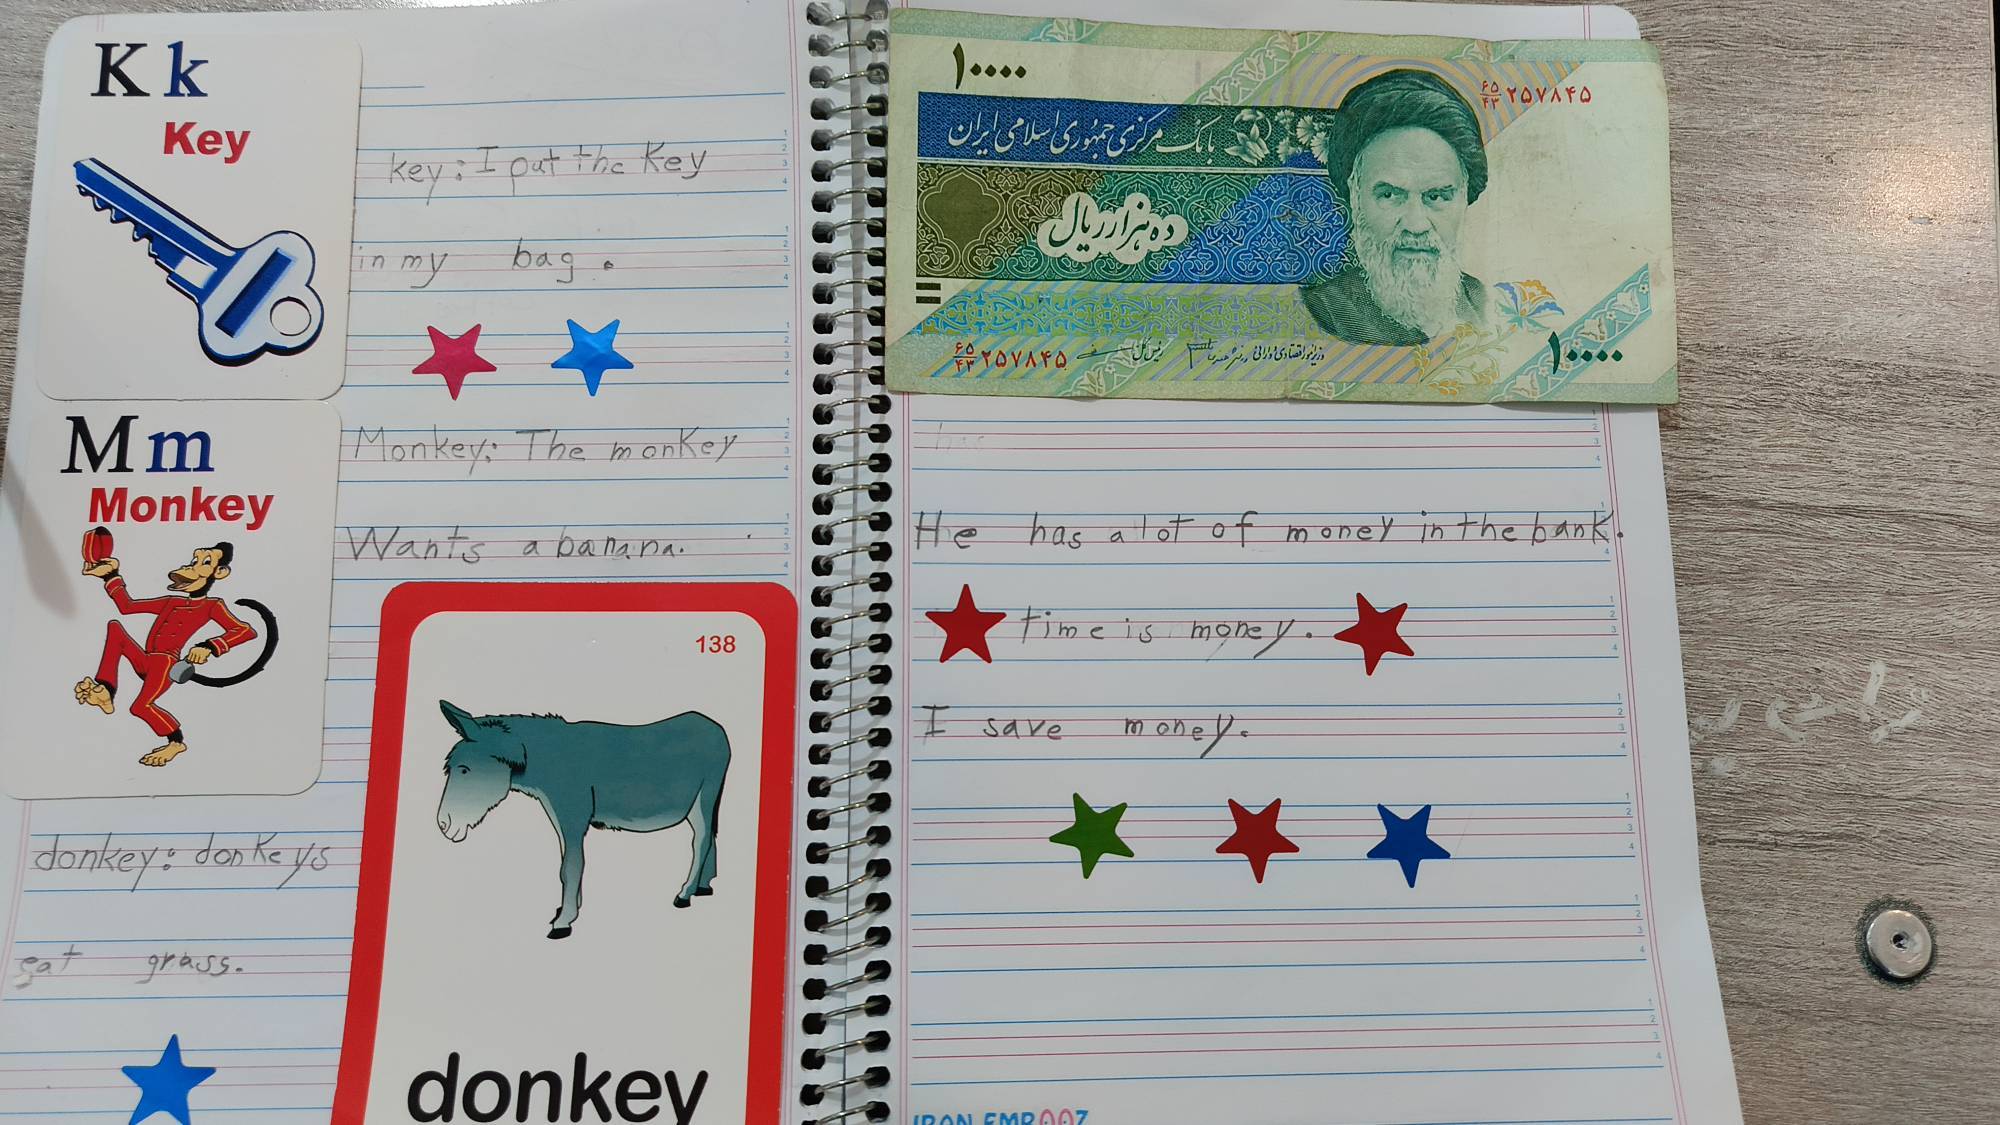 K k
Key
key: I put the Key
in my bag.
M m
Monkey
Monkey: The monkey
Wants a banana.
138
donkey
donkey: donkeys
eat grass.
۱۰۰۰۰
۶۵/۴۳ ۲۵۷۸۴۵
بانک مرکزی جمهوری اسلامی ایران
ده هزار ریال
۶۵/۴۳ ۲۵۷۸۴۵
رئیس کل
وزیر امور اقتصادی و دارائی
۱۰۰۰۰
has
He has a lot of money in the bank.
time is money.
I save money.
IRAN EMROOZ